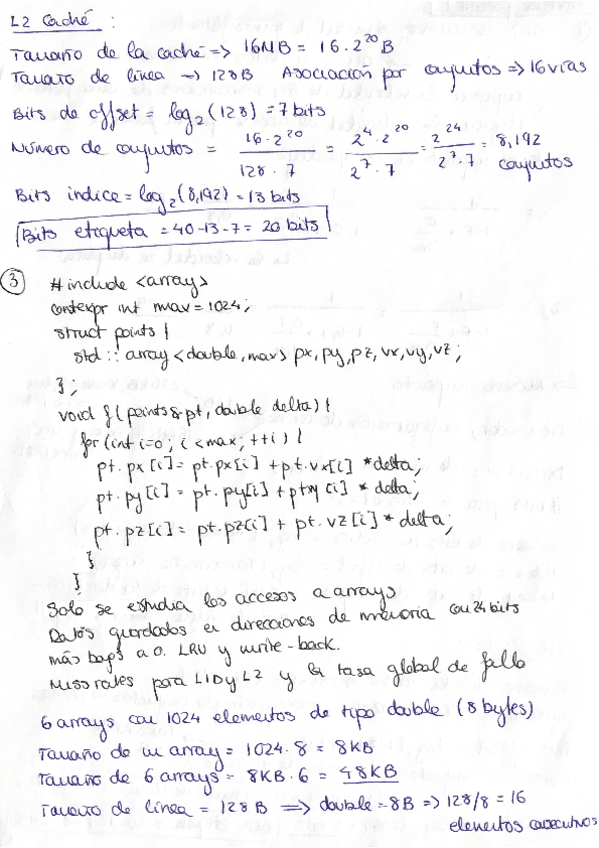 L2 Caché :
Tamaño de la caché => 16MB = 16 · 2^20 B
Tamaño de línea -> 128B Asociación por conjuntos => 16 vías
Bits de offset = log2 (128) = 7 bits
Número de conjuntos = 16·2^20 / 128·7 = 2^4·2^20 / 2^7·7 = 2^24 / 2^7·7 = 8,192 conjuntos
Bits índice = log2 (8,192) = 13 bits
Bits etiqueta = 40-13-7 = 20 bits
3 #include <array>
contexpr int max = 1024;
struct points {
std :: array <double, max> px, py, pz, vx, vy, vz ;
};
void f (points & pt, double delta) {
for (int i=0; i<max; ++i) {
pt.px[i] = pt.px[i] + pt.vx[i] * delta;
pt.py[i] = pt.py[i] + pt.vy[i] * delta;
pt.pz[i] = pt.pz[i] + pt.vz[i] * delta;
}
}
Solo se estudia los accesos a arrays
Datos guardados en direcciones de memoria con 24 bits
más bajos a 0. LRU y write-back.
Miss rates para L1D y L2 y la tasa global de fallo
6 arrays con 1024 elementos de tipo double (8 bytes)
Tamaño de un array = 1024·8 = 8KB
Tamaño de 6 arrays = 8KB·6 = 48KB
Tamaño de línea = 128B => double = 8B => 128/8 = 16
elementos consecutivos